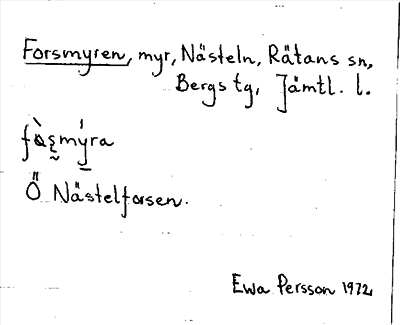 Forsmyren, myr, Nästeln, Rätans sn,
Bergs tg, Jämtl. l.
Ö Nästelforsen.
Ewa Persson 1972